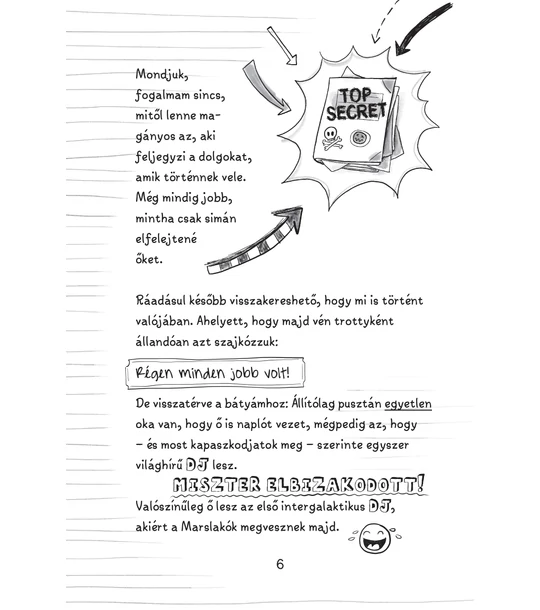 Mondjuk,
fogalmam sincs,
mitől lenne ma-
gányos az, aki
feljegyzi a dolgokat,
amik történnek vele.
Még mindig jobb,
mintha csak simán
elfelejtené
őket.
TOP
SECRET
Ráadásul később visszakereshető, hogy mi is történt
valójában. Ahelyett, hogy majd vén trottyként
állandóan azt szajkózzuk:
Régen minden jobb volt!
De visszatérve a bátyámhoz: Állítólag pusztán egyetlen
oka van, hogy ő is naplót vezet, mégpedig az, hogy
– és most kapaszkodjatok meg – szerinte egyszer
világhírű DJ lesz.
MISZTER ELBIZAKODOTT!
Valószínűleg ő lesz az első intergalaktikus DJ,
akiért a Marslakók megvesznek majd.
6